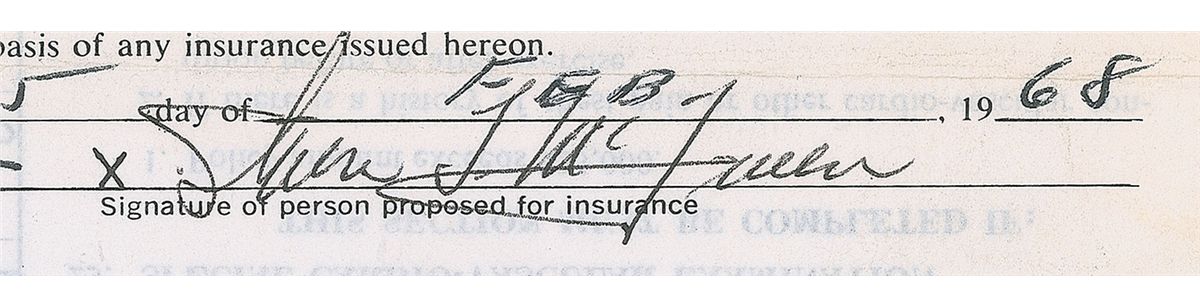 basis of any insurance issued hereon.
5 day of FEB, 1968
X Steve McQueen
Signature of person proposed for insurance